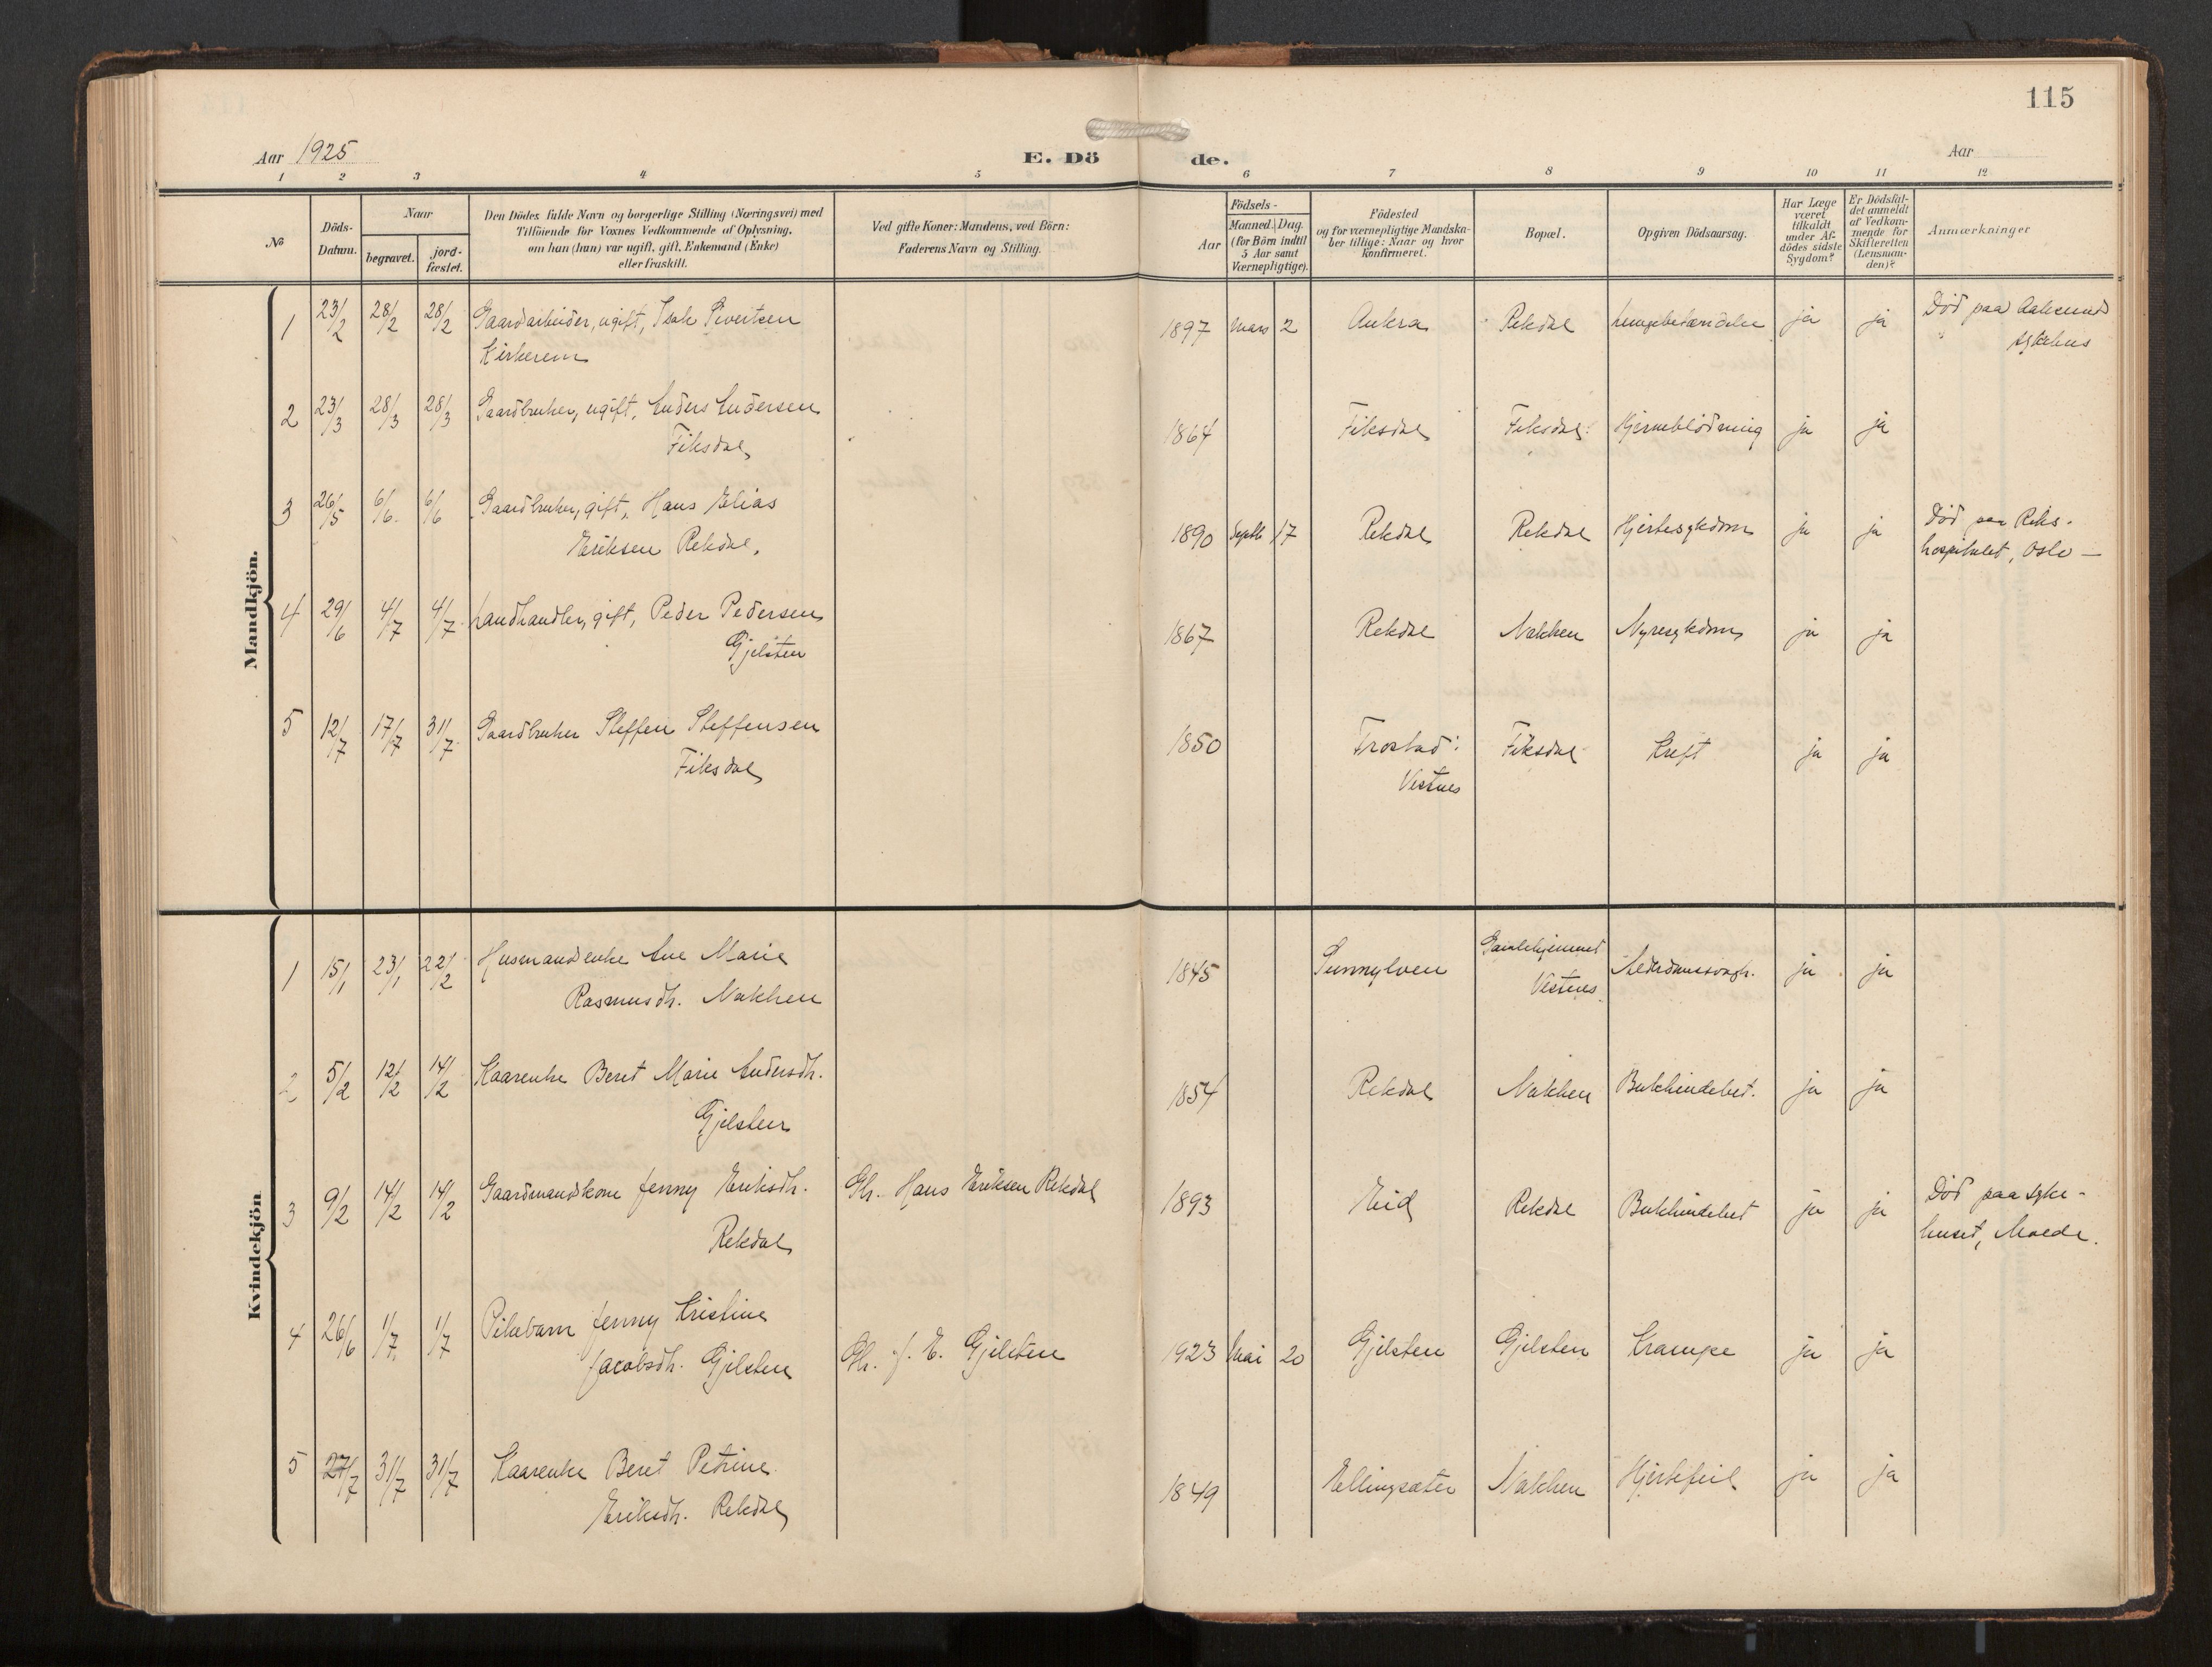 115
Aar 1925
E. Dö
de.
Aar
1 2 3 4 5 6 7 8 9 10 11 12
No
Döds-
Datum.
Naar
begravet.
jord-
fæstet.
Den Dödes fulde Navn og borgerlige Stilling (Næringsvei) med
Tilföiende for Voxnes Vedkommende af Oplysning,
om han (hun) var ugift, gift, Enkemand (Enke)
eller fraskilt.
Ved gifte Koner: Mandens, ved Börn:
Faderens Navn og Stilling.
Födsels-
Aar
Maaned. Dag.
(for Börn indtil
5 Aar samt
Værnepligtige).
Födested
og for værnepligtige Mandska-
ber tillige: Naar og hvor
konfirmeret.
Bopæl.
Opgiven Dödsaarsag.
Har Læge
været
tilkaldt
under Af-
dödes sidste
Sygdom?
Er Dödsfal-
det anmeldt
af Vedkom-
mende for
Skifteretten
(Lensman-
den)?
Anmærkninger
Mandkjön.
1 23/2 28/2 28/2 Gaardarbeider, ugift, Isak Sivertsen
Kirkerem
1897 Mars 2 Aukra Rekdal Lungebetændelse ja ja Död paa Aalesund
sykehus
2 23/3 28/3 28/3 Gaardbruker, ugift, Anders Andersen
Fiksdal
1864 Fiksdal Fiksdal Hjerneblödning ja ja
3 26/5 6/6 6/6 Gaardbruker, gift, Hans Elias
Eriksen Rekdal.
1890 Septb 17 Rekdal Rekdal Hjertesykdom ja ja Död paa Riks-
hospitalet, Oslo —
4 29/6 4/7 4/7 Landhandler, gift, Peder Pedersen
Gjelsten
1867 Rekdal Nakken Nyresykdom ja ja
5 12/7 17/7 31/7 Gaardbruker Steffen Steffensen
Fiksdal
1850 Frostad: Fiksdal Kreft ja ja
Vestnes
Kvindekjön.
1 15/1 23/1 22/2 Husmandsenke Ane Marie
Rasmusdh. Nakken
1845 Sunnylven Gamlehjemmet
Vestnes. Alderdomssvagh. ja ja
2 5/2 12/2 14/2 Kaarenke Beret Marie Andersdh.
Gjelsten
1854 Rekdal Nakken Bukhindebet. ja ja
3 9/2 14/2 14/2 Gaardmandskone Jenny Eriksdh.
Rekdal
Gbr. Hans Eriksen Rekdal
1893 Eid Rekdal Bukhindebet ja ja Död paa syke-
huset, Molde.
4 26/6 1/7 1/7 Pikebarn Jenny Kristine
Jacobsdh. Gjelsten
Gbr. J. E. Gjelsten
1923 Mai 20 Gjelsten Gjelsten Krampe ja ja
5 27/7 31/7 31/7 Kaarenke Beret Petrine
Eriksdh. Rekdal
1849 Ellingsæter Nakken Hjertefeil ja ja